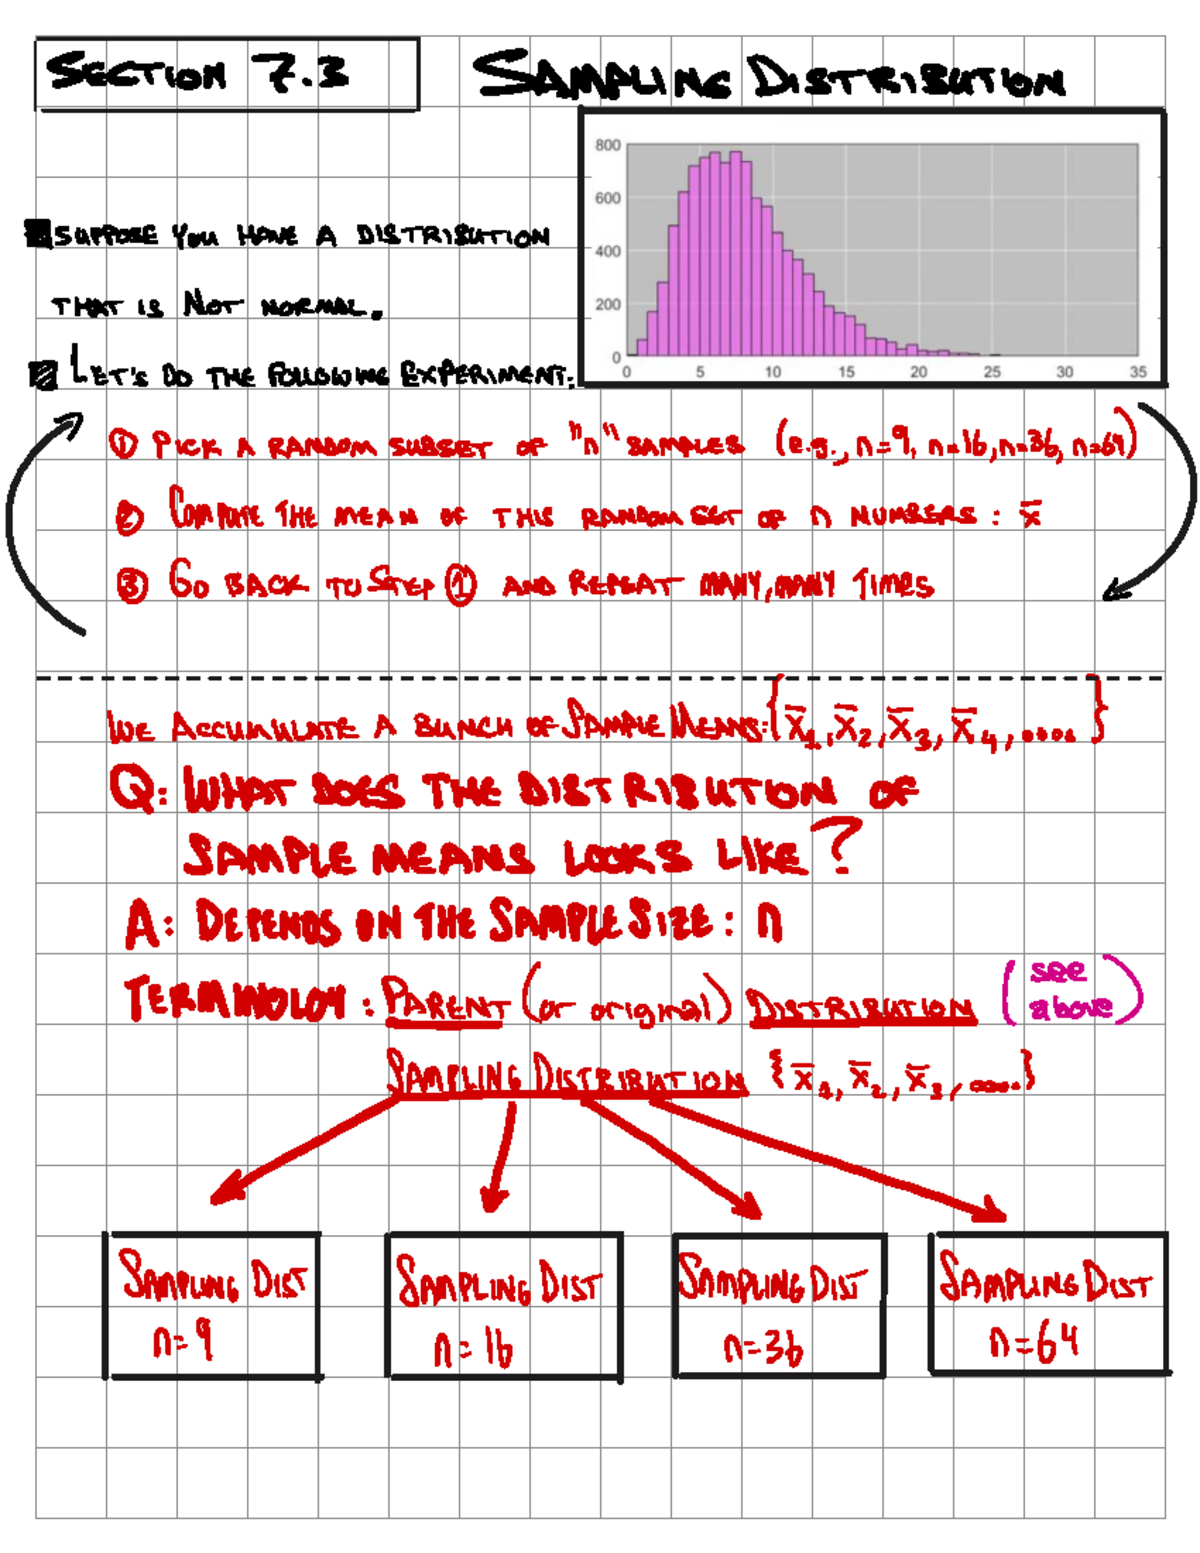 SECTION 7.3
SAMPLING DISTRIBUTION
800
600
400
200
0
0 5 10 15 20 25 30 35
SUPPOSE YOU HAVE A DISTRIBUTION
THAT IS NOT NORMAL.
LET'S DO THE FOLLOWING EXPERIMENT:
① PICK A RANDOM SUBSET OF "n" SAMPLES (e.g., n=9, n=16, n=36, n=64)
② COMPUTE THE MEAN OF THIS RANDOM SET OF n NUMBERS: x̄
③ GO BACK TO STEP ① AND REPEAT MANY, MANY TIMES
WE ACCUMULATE A BUNCH OF SAMPLE MEANS: {x̄₁, x̄₂, x̄₃, x̄₄, ....}
Q: WHAT DOES THE DISTRIBUTION OF
SAMPLE MEANS LOOKS LIKE?
A: DEPENDS ON THE SAMPLE SIZE: n
TERMINOLOY: PARENT (or original) DISTRIBUTION (see above)
SAMPLING DISTRIBUTION {x̄₁, x̄₂, x̄₃, ....}
SAMPLING DIST
n=9
SAMPLING DIST
n=16
SAMPLING DIST
n=36
SAMPLING DIST
n=64